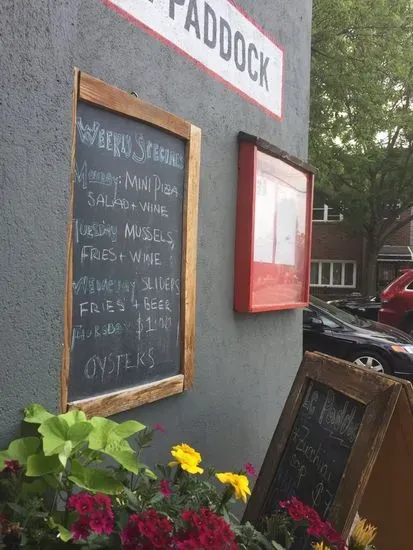 PADDOCK
Weekly Specials
Monday: MINI PIZZA
SALAD + WINE
Tuesday MUSSELS,
FRIES + WINE
Wednesday SLIDERS
FRIES + BEER
Thursday $1.00
OYSTERS
Paddock